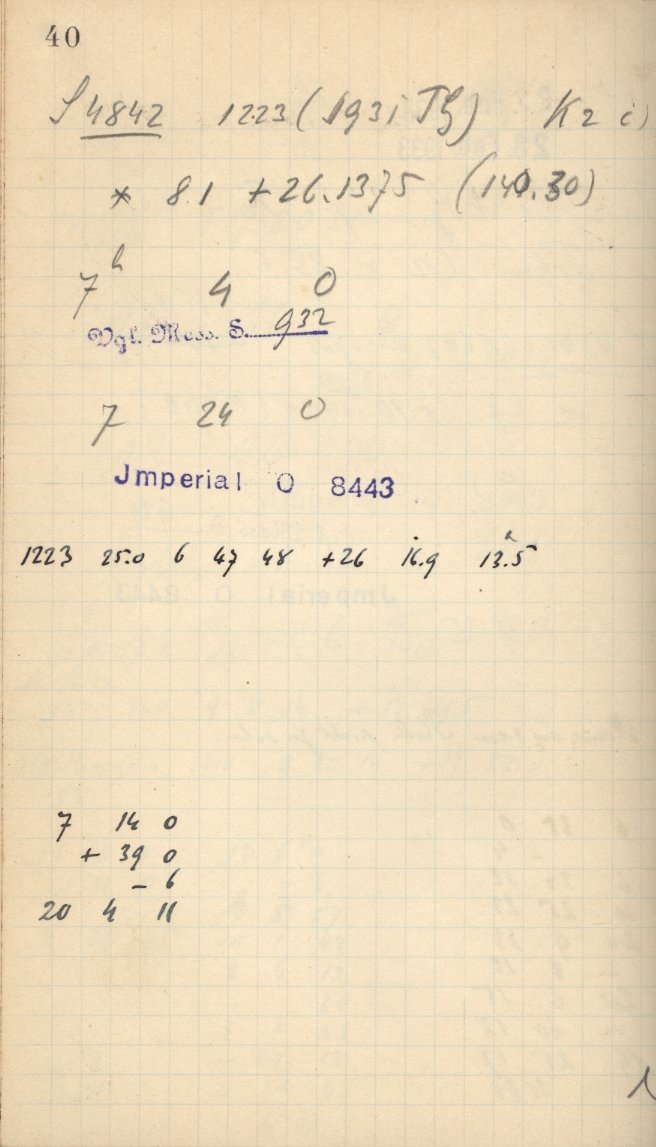 40
S 4842 1223 (1931 TG) K 2 c)
* 8.1 +26.1375 (140.30)
7h 4 0
Vgl. Mess. S. 932
7 24 0
Jmperial O 8443
1223 25.0 6 47 48 +26 16.9 13.5
7 14 0
+ 39 0
- 6
20 4 11